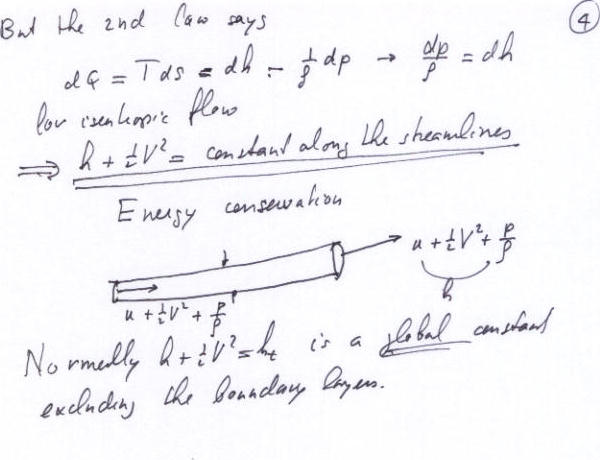 But the 2nd law says
④
dq = Tds = dh - 1/ρ dp → dp/ρ = dh
for isentropic flow
⇒ h + ½V² = constant along the streamlines
Energy conservation
u + ½V² + p/ρ
h
u + ½V² + p/ρ
Normally h + ½V² = hₜ is a global constant
excluding the boundary layers.